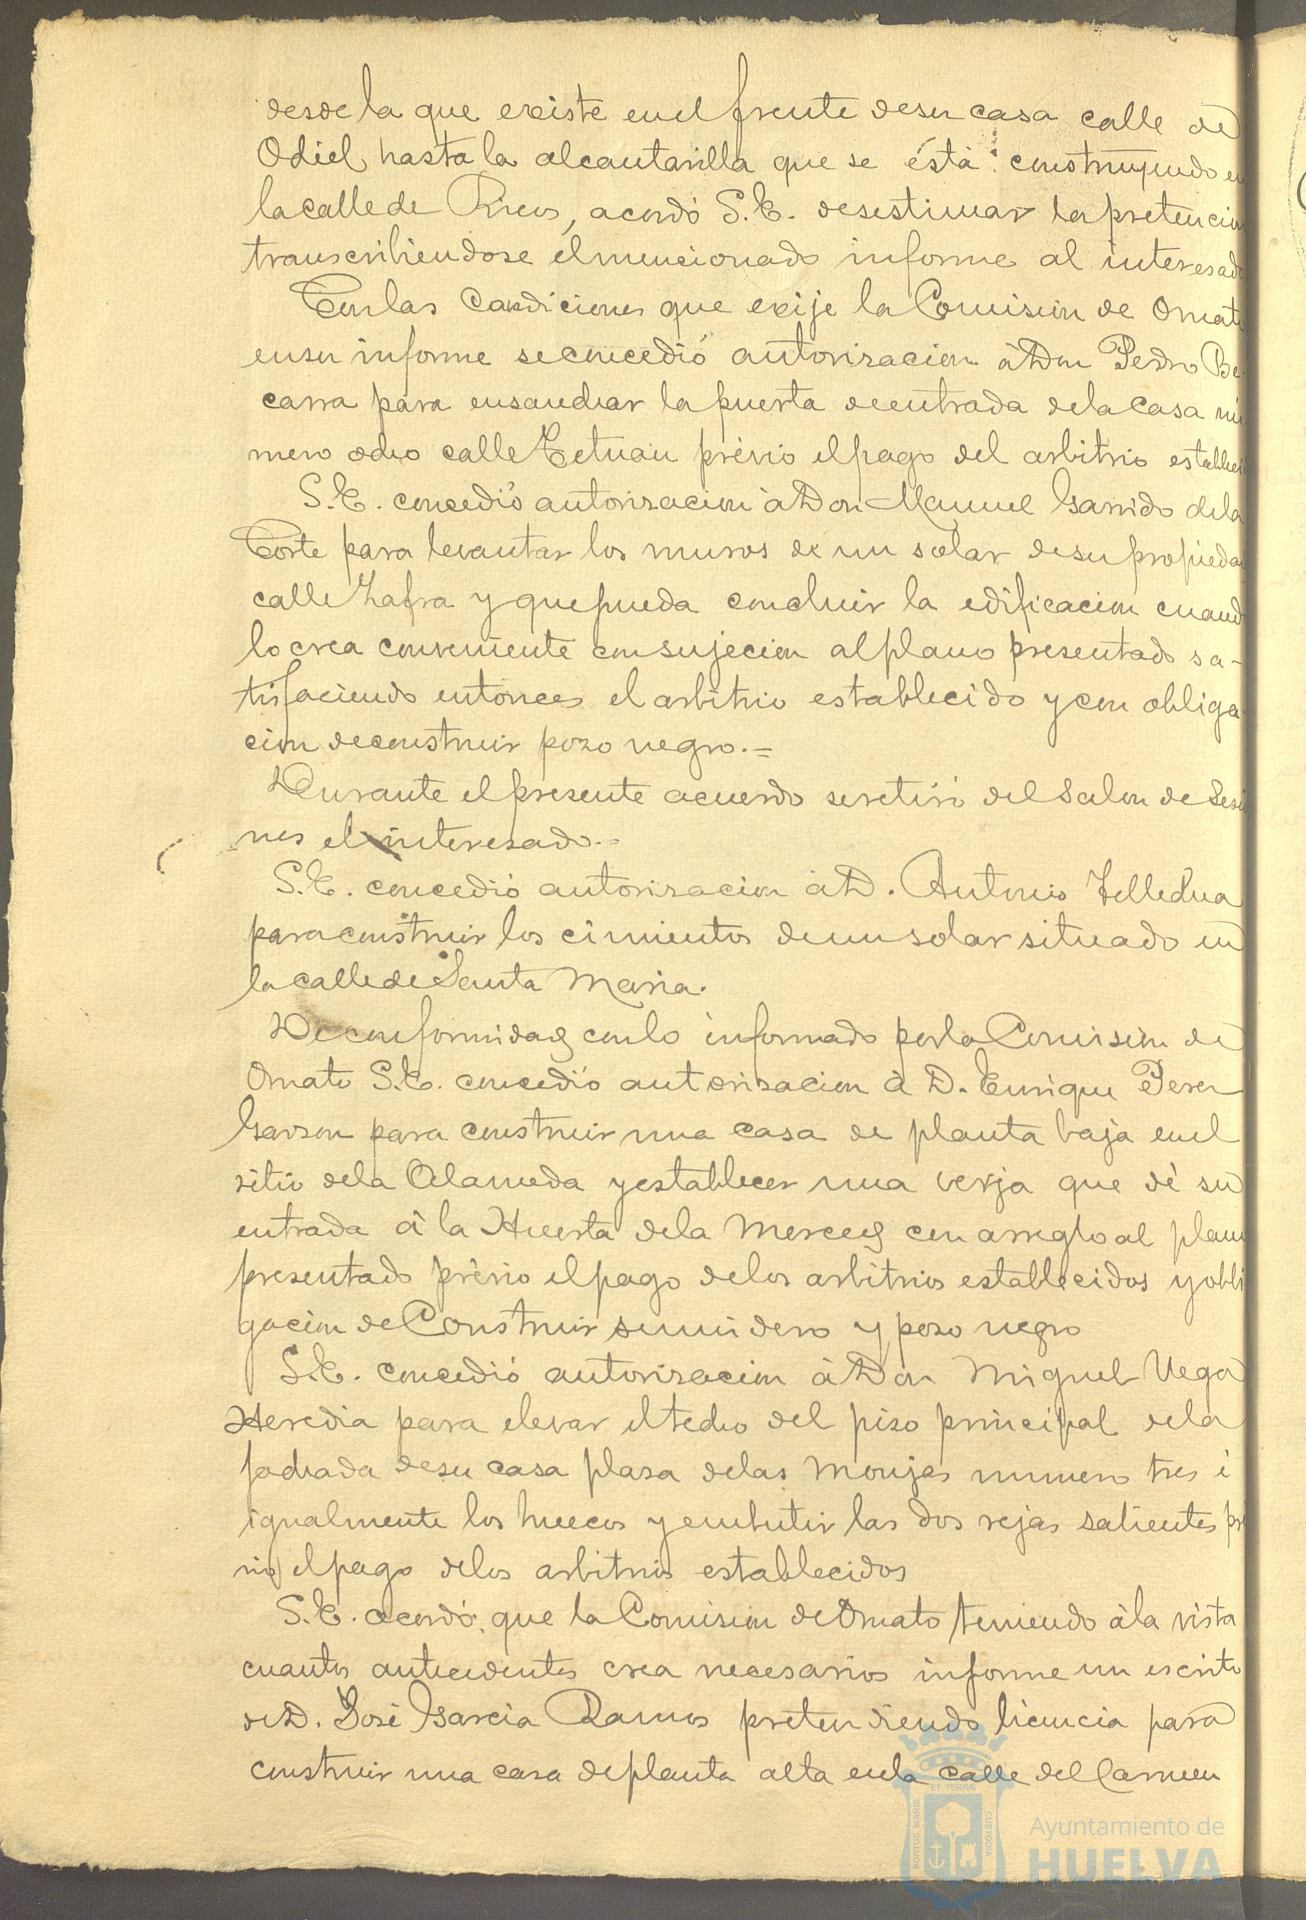 desde la que existe en el frente de su casa calle de
Odiel hasta la alcantarilla que se está construyendo en
la calle de Ricos, acordó S.E. desestimar la pretencion
transcribiendose el mencionado informe al interesado
Con las Condiciones que exije la Comision de Ornato
en su informe se concedió autorizacion á Don Pedro Be-
carra para ensanchar la puerta de entrada de la casa nú
mero ocho calle Tetuan prévio el pago del arbitrio estableci
S.E. concedió autorizacion á Don Manuel Garrido de la
Corte para levantar los muros de un solar de su propiedad
calle Zafra y que pueda concluir la edificacion cuando
lo crea conveniente con sujecion al plano presentado sa-
tisfaciendo entonces el arbitrio establecido y con obliga-
cion de construir pozo negro.=
Durante el presente acuerdo se retiró del Salon de Sesio
nes el interesado.=
S.E. concedió autorizacion á D. Antonio
para construir los cimientos de un solar situado en
la calle de Santa Maria.
De conformidad con lo informado por la Comision de
Ornato S.E. concedió autorizacion á D. Enrique Perez
Garzon para construir una casa de planta baja en el
sitio de la Alameda y establecer una verja que dé su
entrada á la Huerta de la Merced con arreglo al plano
presentado prévio el pago de los arbitrios establecidos y obli
gacion de Construir sumidero y pozo negro
S.E. concedió autorizacion á Don Miguel Vega
Heredia para elevar el techo del piso principal de la
fachada de su casa plaza de las Monjas numero tres é
igualmente los huecos y embutir las dos rejas salientes pré
vio el pago de los arbitrios establecidos
S.E. acordó que la Comision de Ornato teniendo á la vista
cuantos antecedentes crea necesarios informe un escrito
de D. José Garcia Ramos pretendiendo licencia para
construir una casa de planta alta en la calle del Carmen
PORTUS MARIS ET TERRÆ CUSTODIA
Ayuntamiento de
HUELVA